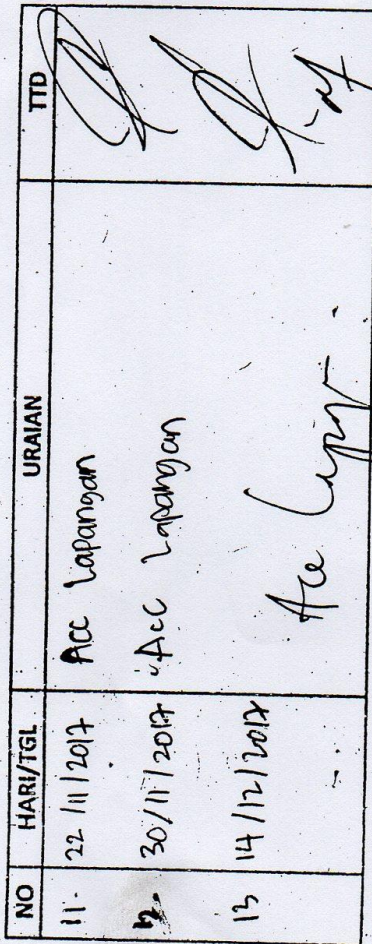 NO HARI/TGL URAIAN TTD
11. 22/11/2017 Acc Lapangan
12. 30/11/2017 "Acc Lapangan
13 14/12/2017 Acc